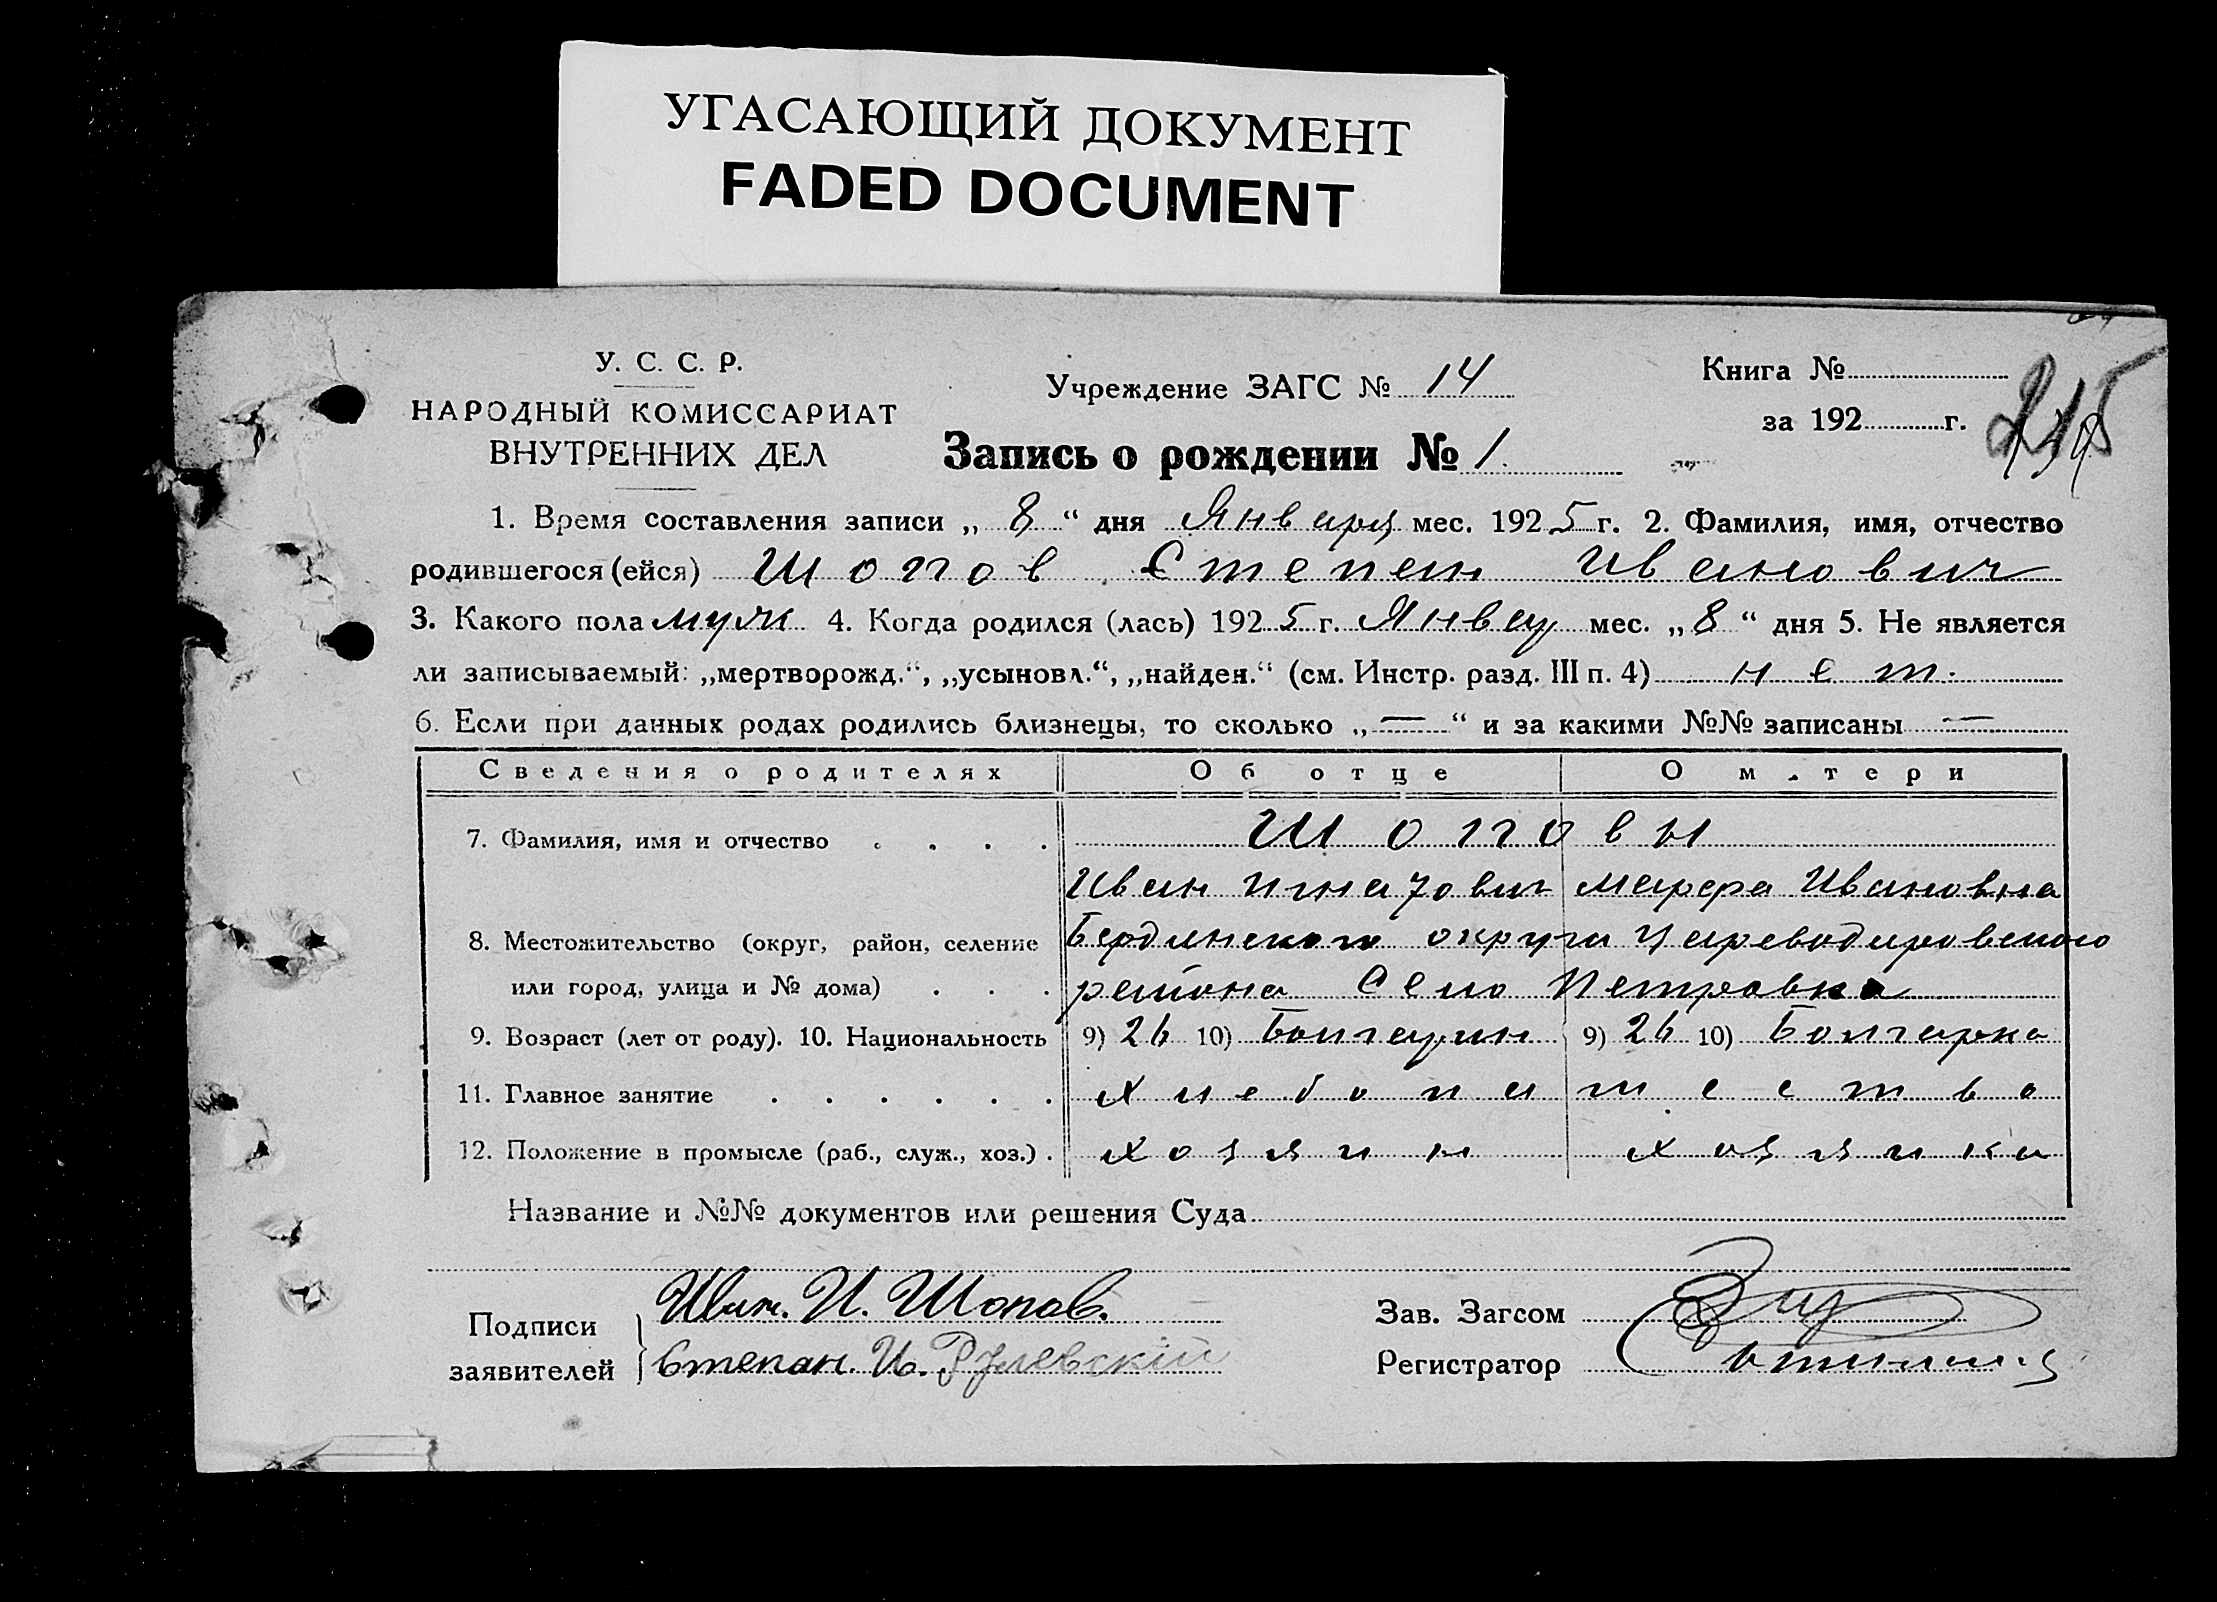 УГАСАЮЩИЙ ДОКУМЕНТ
FADED DOCUMENT
У. С. С. Р.
НАРОДНЫЙ КОМИССАРИАТ
ВНУТРЕННИХ ДЕЛ
Учреждение ЗАГС № 14
Книга №
за 192 г.
Запись о рождении № 1.
1. Время составления записи „ 8 “ дня Января мес. 1925 г. 2. Фамилия, имя, отчество
родившегося (ейся) Шопов Степан Иванович
3. Какого пола муж 4. Когда родился (лась) 1925 г. Января мес. „ 8 “ дня 5. Не является
ли записываемый: „мертворожд.“, „усыновл.“, „найден.“ (см. Инстр. разд. III п. 4) нет.
6. Если при данных родах родились близнецы, то сколько „ — “ и за какими №№ записаны —
Сведения о родителях Об отце О м.тери
7. Фамилия, имя и отчество . . . . Шоповы
Иван Игнатович Марфа Ивановна
8. Местожительство (округ, район, селение Бердянского округа Цареводаровского
или город, улица и № дома) . . . района Село Петровка
9. Возраст (лет от роду). 10. Национальность 9) 26 10) Болгарин 9) 26 10) Болгарка
11. Главное занятие . . . . . . Хлебопашество
12. Положение в промысле (раб., служ., хоз.) . хозяин хозяйка
Название и №№ документов или решения Суда
Подписи
заявителей
Иван. И. Шопов.
Степан. И.
Зав. Загсом
Регистратор